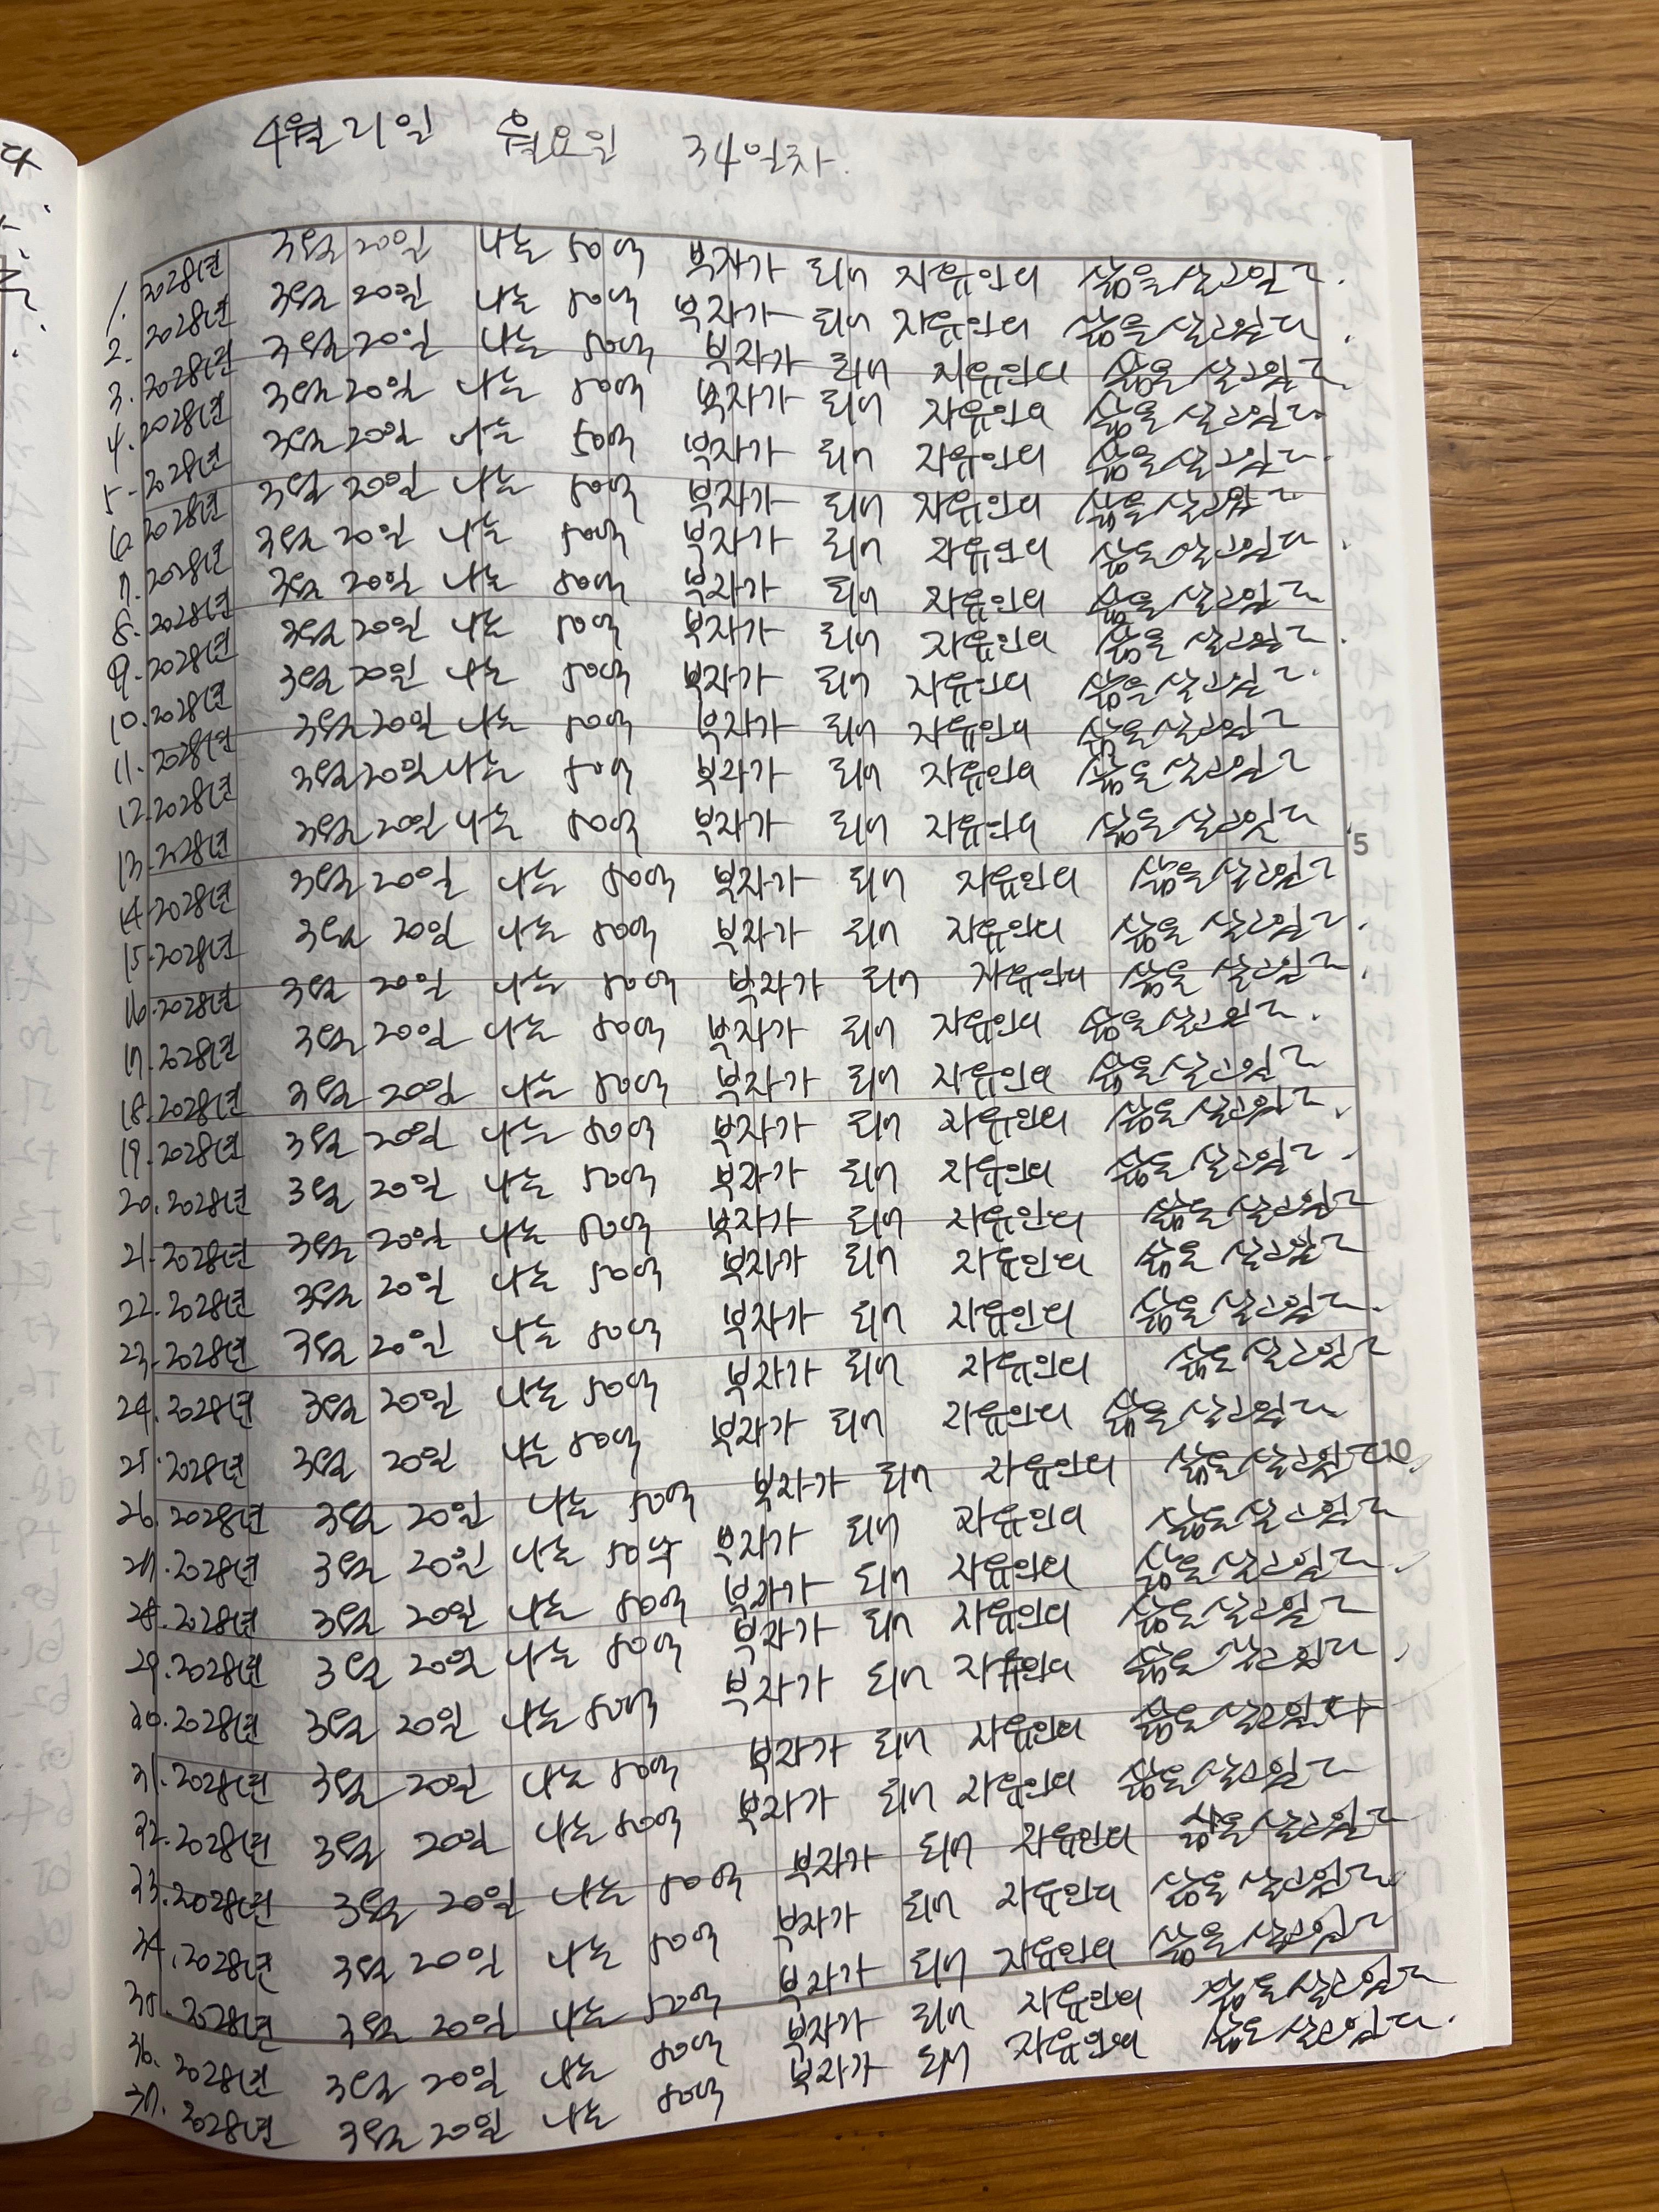 4월 21일 월요일 34일차.
1. 2028년 3월 20일 나는 50억 부자가 되어 자유인의 삶을 살고있다.
2. 2028년 3월 20일 나는 50억 부자가 되어 자유인의 삶을 살고있다.
3. 2028년 3월 20일 나는 50억 부자가 되어 자유인의 삶을 살고있다.
4. 2028년 3월 20일 나는 50억 부자가 되어 자유인의 삶을 살고있다.
5. 2028년 3월 20일 나는 50억 부자가 되어 자유인의 삶을 살고있다.
6. 2028년 3월 20일 나는 50억 부자가 되어 자유인의 삶을 살고있다
7. 2028년 3월 20일 나는 50억 부자가 되어 자유인의 삶을 살고있다.
8. 2028년 3월 20일 나는 50억 부자가 되어 자유인의 삶을 살고있다
9. 2028년 3월 20일 나는 50억 부자가 되어 자유인의 삶을 살고있다.
10. 2028년 3월 20일 나는 50억 부자가 되어 자유인의 삶을 살고있다.
11. 2028년 3월 20일 나는 50억 부자가 되어 자유인의 삶을 살고있다
12. 2028년 3월 20일 나는 50억 부자가 되어 자유인의 삶을 살고있다
13. 2028년 3월 20일 나는 50억 부자가 되어 자유인의 삶을 살고있다.
5
14. 2028년 3월 20일 나는 50억 부자가 되어 자유인의 삶을 살고있다
15. 2028년 3월 20일 나는 50억 부자가 되어 자유인의 삶을 살고있다.
16. 2028년 3월 20일 나는 50억 부자가 되어 자유인의 삶을 살고있다.
17. 2028년 3월 20일 나는 50억 부자가 되어 자유인의 삶을 살고있다.
18. 2028년 3월 20일 나는 50억 부자가 되어 자유인의 삶을 살고있다
19. 2028년 3월 20일 나는 50억 부자가 되어 자유인의 삶을 살고있다.
20. 2028년 3월 20일 나는 50억 부자가 되어 자유인의 삶을 살고있다.
21. 2028년 3월 20일 나는 50억 부자가 되어 자유인의 삶을 살고있다
22. 2028년 3월 20일 나는 50억 부자가 되어 자유인의 삶을 살고있다
23. 2028년 3월 20일 나는 50억 부자가 되어 자유인의 삶을 살고있다.
24. 2028년 3월 20일 나는 50억 부자가 되어 자유인의 삶을 살고있다
25. 2028년 3월 20일 나는 50억 부자가 되어 자유인의 삶을 살고있다.
10
26. 2028년 3월 20일 나는 50억 부자가 되어 자유인의 삶을 살고있다.
27. 2028년 3월 20일 나는 50억 부자가 되어 자유인의 삶을 살고있다
28. 2028년 3월 20일 나는 50억 부자가 되어 자유인의 삶을 살고있다.
29. 2028년 3월 20일 나는 50억 부자가 되어 자유인의 삶을 살고있다
30. 2028년 3월 20일 나는 50억 부자가 되어 자유인의 삶을 살고있다.
31. 2028년 3월 20일 나는 50억 부자가 되어 자유인의 삶을 살고있다
32. 2028년 3월 20일 나는 50억 부자가 되어 자유인의 삶을 살고있다
33. 2028년 3월 20일 나는 50억 부자가 되어 자유인의 삶을 살고있다
34. 2028년 3월 20일 나는 50억 부자가 되어 자유인의 삶을 살고있다.
35. 2028년 3월 20일 나는 50억 부자가 되어 자유인의 삶을 살고있다
36. 2028년 3월 20일 나는 50억 부자가 되어 자유인의 삶을 살고있다
37. 2028년 3월 20일 나는 50억 부자가 되어 자유인의 삶을 살고있다.